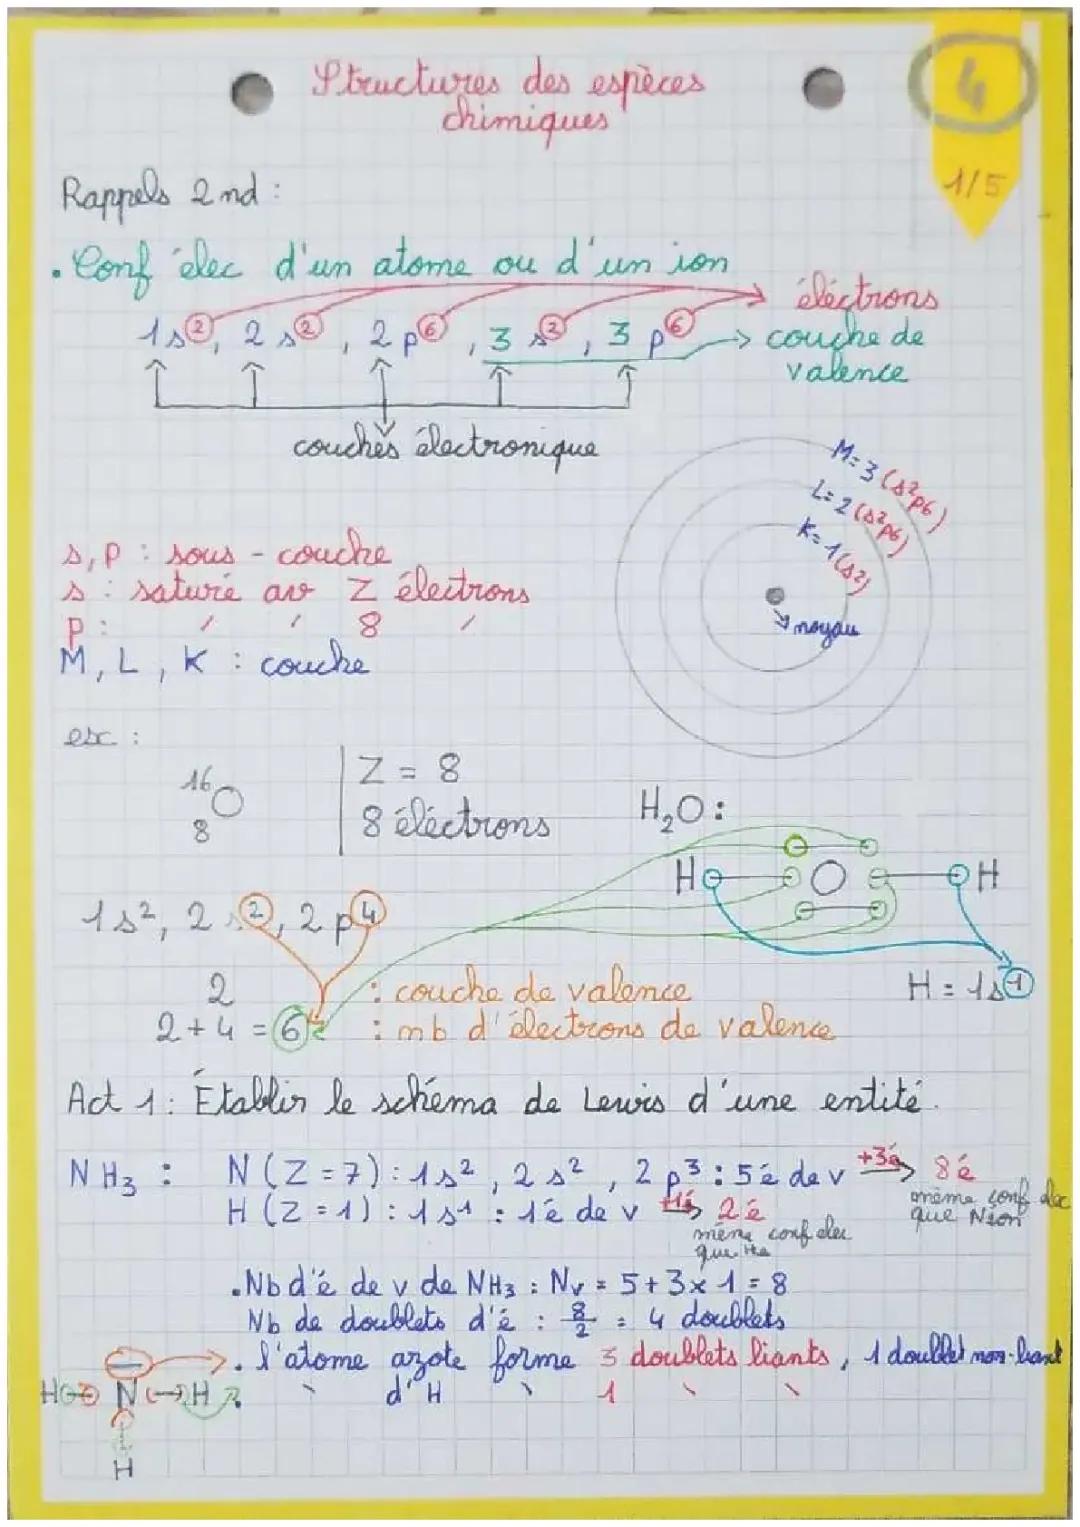 Structures des espèces
chimiques
4
1/5
Rappels 2nd :
. Conf élec d'un atome ou d'un ion
1s②, 2s②, 2p⑥, 3s②, 3p⑥
électrons
couche de
valence
couches électronique
M = 3 (s²p6)
L = 2 (s²p6)
K = 1 (s²)
noyau
s, p : sous - couche
s : saturé av Z électrons
p : ′ ′ 8 ′
M, L, K : couche
ex :
16
O
8
Z = 8
8 électrons
H₂O :
H O H
1s², 2s②, 2p④
H = 1s①
2 : couche de valence
2 + 4 = ⑥ : nb d'électrons de valence
Act 1 : Établir le schéma de Lewis d'une entité.
NH₃ : N (Z = 7) : 1s², 2s², 2p³ : 5é de v +3é → 8é
même conf élec
que Néon
H (Z = 1) : 1s¹ : 1é de v +1é → 2é
même conf elec
que He
. Nb d'é de v de NH₃ : Nv = 5 + 3 x 1 = 8
Nb de doublets d'é : 8/2 = 4 doublets
. l'atome azote forme 3 doublets liants, 1 doublet non-liant
H N H
. \ d'H \ 1 \ \
H